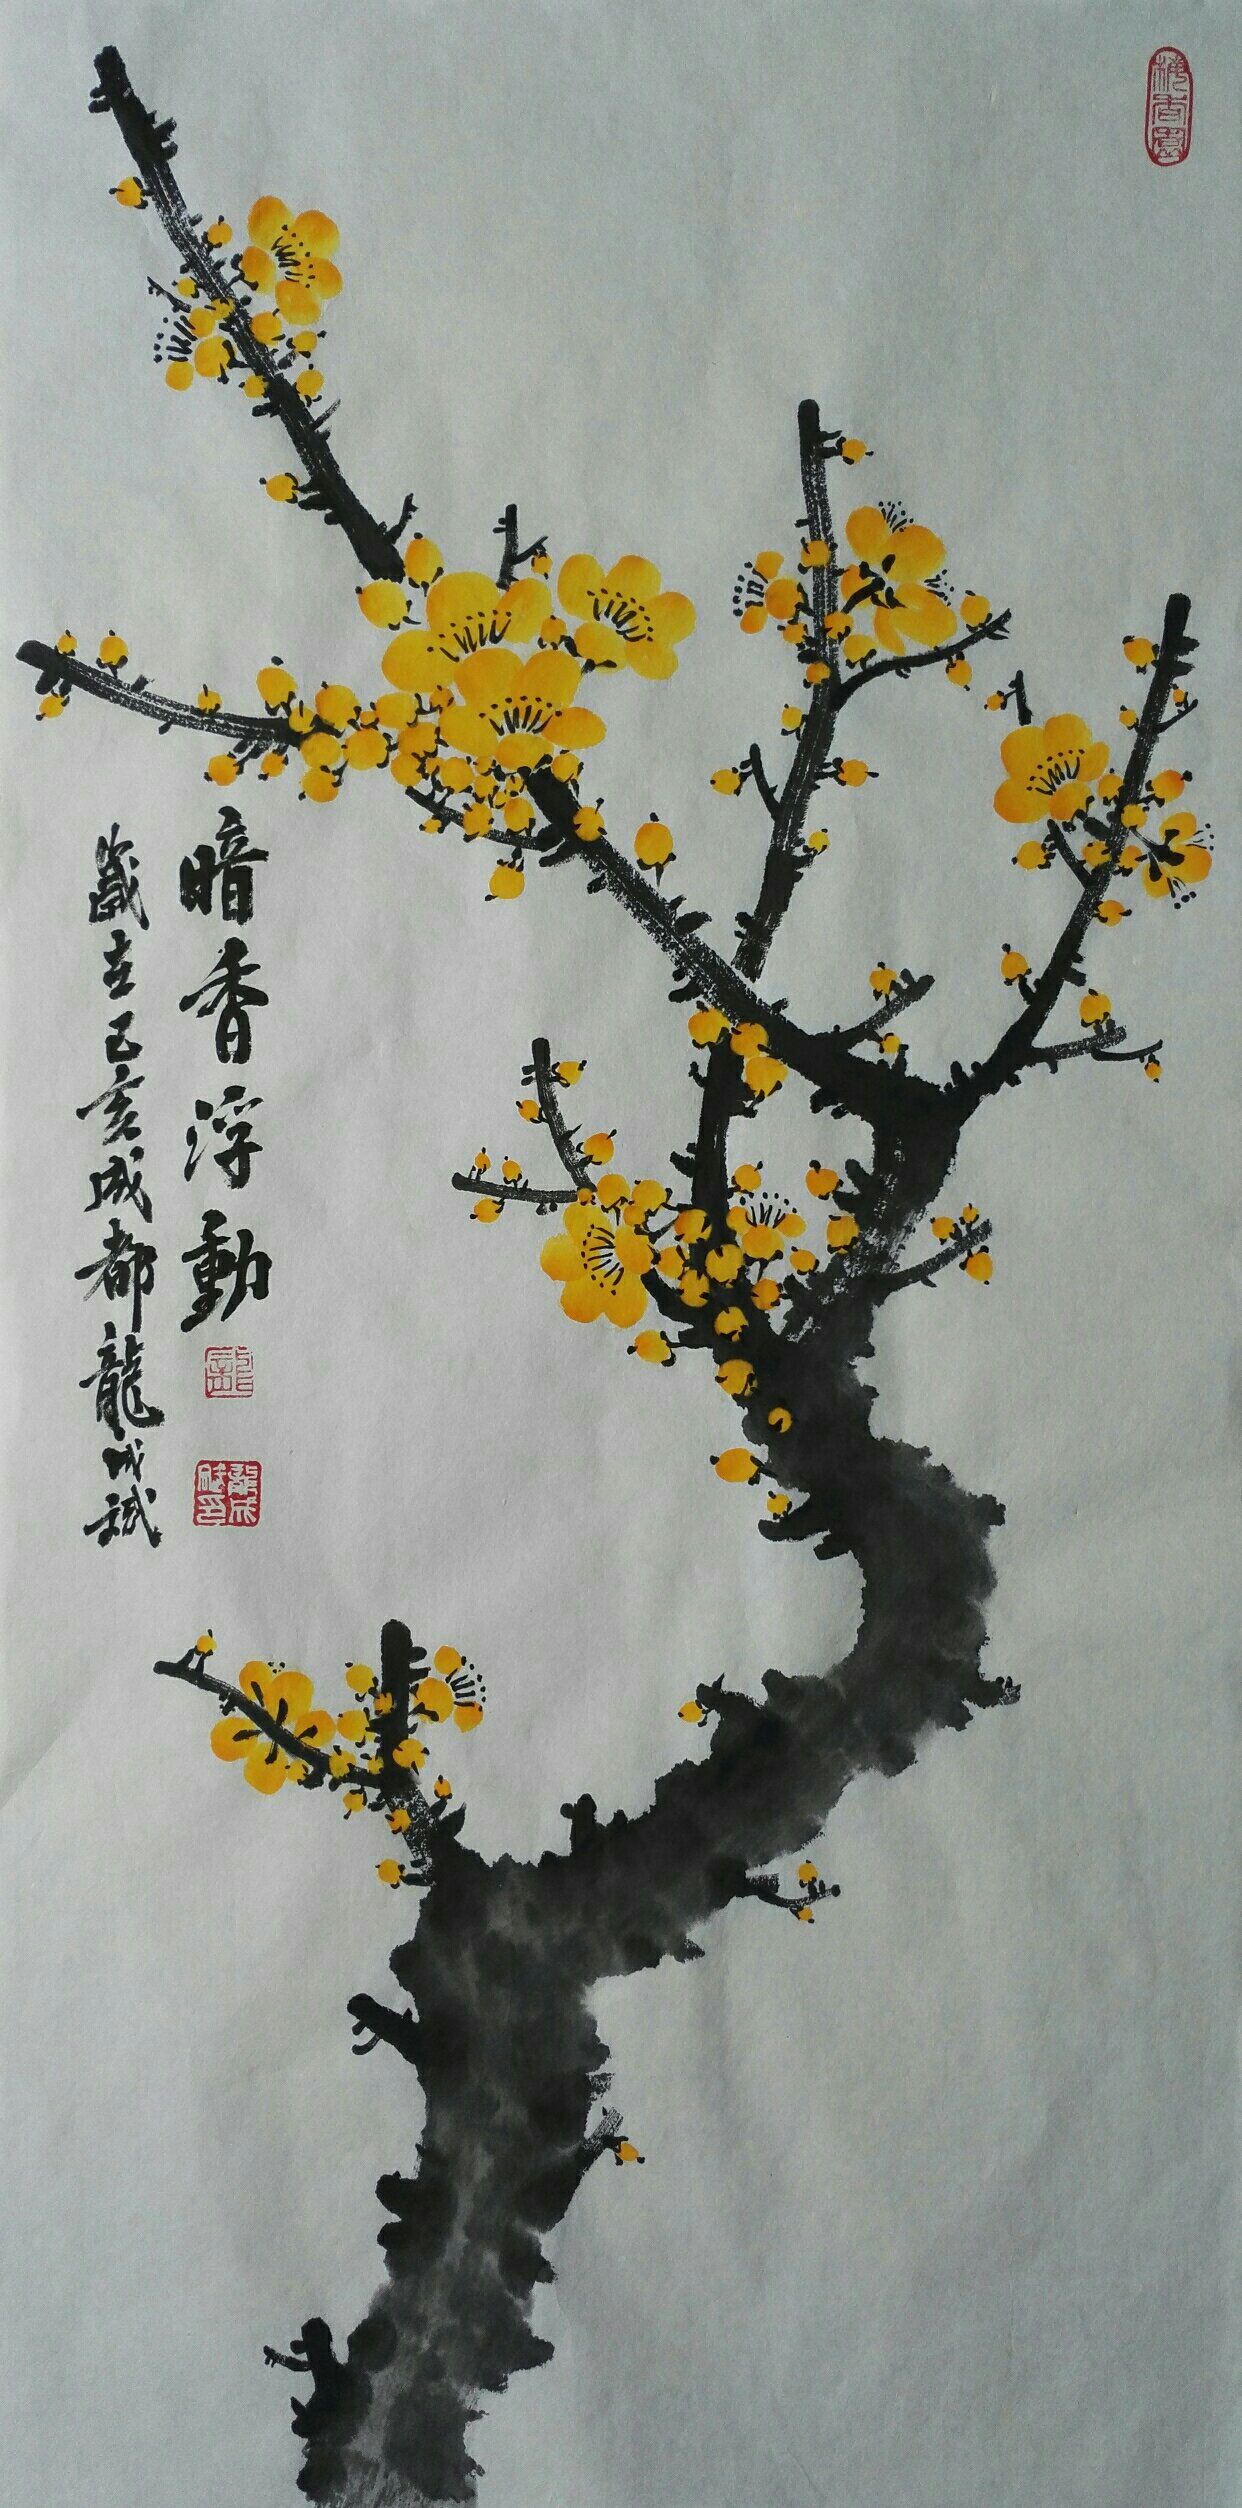 暗香浮動
歲在己亥成都龍成斌